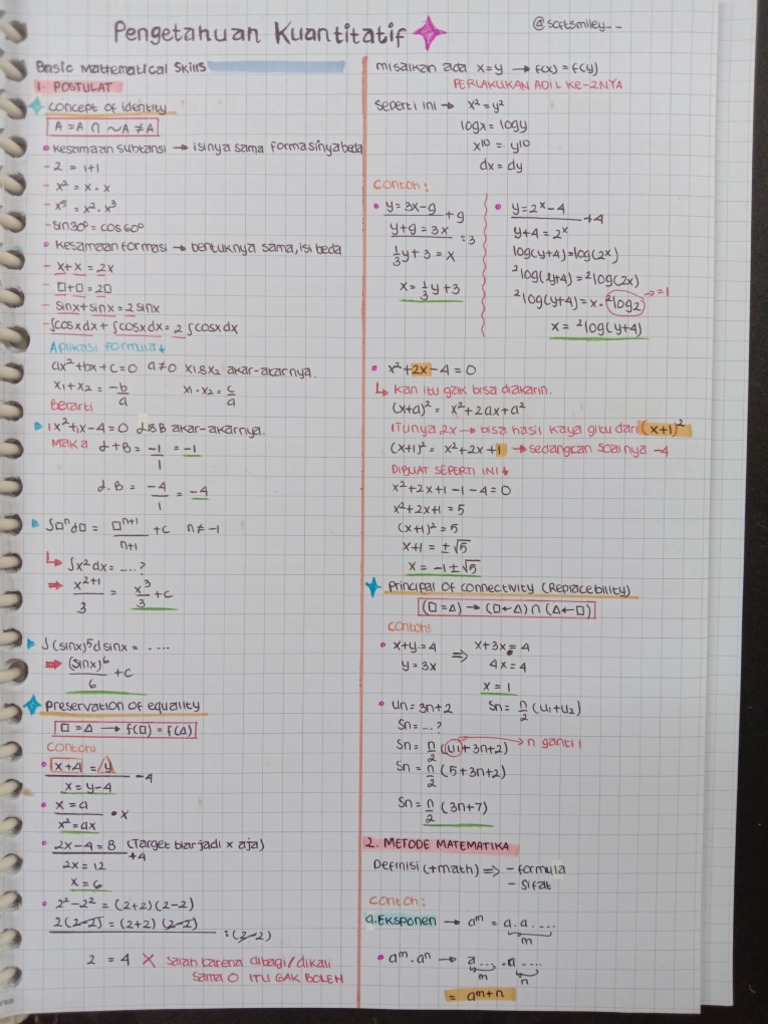 Pengetahuan Kuantitatif
@softsmiley__
Basic Mathematical Skills
1. POSTULAT
Concept of identity
A = A ∩ ~A ≠ A
• Kesamaan subtansi → isinya sama formasinya beda
- 2 = 1+1
- x² = x · x
- x⁵ = x² · x³
- sin 30° = cos 60°
• Kesamaan formasi → bentuknya sama, isi beda
- x + x = 2x
- □ + □ = 2□
- sinx + sinx = 2 sinx
- ∫cosx dx + ∫cosx dx = 2 ∫cosx dx
Aplikasi Formula ↓
ax² + bx + c = 0 a≠0 x1 & x2 akar-akarnya.
x1 + x2 = -b/a x1 · x2 = c/a
Berarti
1x² + 1x - 4 = 0 α & B akar-akarnya.
Maka α + B = -1/1 = -1
α . B = -4/1 = -4
∫□ⁿ d□ = □ⁿ⁺¹/n+1 + c n ≠ -1
↳ ∫x² dx = ....?
⇒ x²⁺¹/3 = x³/3 + c
∫(sinx)⁵ d sinx = ....
⇒ (sinx)⁶/6 + c
Preservation of equality
□ = Δ → f(□) = f(Δ)
Contoh:
• x + 4 = y
-4
x = y - 4
• x = a
· x
x² = ax
• 2x - 4 = 8 (Target biar jadi x aja)
+4
2x = 12
x = 6
• 2² - 2² = (2+2)(2-2)
2(2-2) = (2+2)(2-2)
: (2-2)
2 = 4 X salah karena dibagi/dikali
sama 0 ITU GAK BOLEH
misalkan ada x = y → f(x) = f(y)
PERLAKUKAN ADIL KE-2NYA
Seperti ini → x² = y²
log x = log y
x¹⁰ = y¹⁰
dx = dy
Contoh:
• y = 3x - 9
+ 9
y + 9 = 3x
: 3
1/3 y + 3 = x
x = 1/3 y + 3
• y = 2ˣ - 4
+4
y + 4 = 2ˣ
log(y+4) = log(2ˣ)
²log(y+4) = ²log(2x)
²log(y+4) = x · ²log2 → = 1
x = ²log(y+4)
• x² + 2x - 4 = 0
↳ Kan itu gak bisa diakarin.
(x+a)² = x² + 2ax + a²
Itunya 2x → bisa hasil kaya gitu dari (x+1)²
(x+1)² = x² + 2x + 1 → sedangkan soalnya -4
DIBUAT SEPERTI INI ↓
x² + 2x + 1 - 1 - 4 = 0
x² + 2x + 1 = 5
(x+1)² = 5
x + 1 = ± √5
x = -1 ± √5
Principal of connectivity (Replacebility)
(□ = Δ) → (□ ← Δ) ∩ (Δ ← □)
Contoh:
• x + y = 4 ⇒ x + 3x = 4
y = 3x 4x = 4
x = 1
• Un = 3n + 2 Sn = n/2 (U1 + U2)
Sn = ...?
Sn = n/2 (U1 + 3n + 2) → n ganti 1
Sn = n/2 (5 + 3n + 2)
Sn = n/2 (3n + 7)
2. METODE MATEMATIKA
Definisi (+math) ⇒ - formula
- sifat
Contoh:
a. Eksponen → aᵐ = a . a . ....
m
• aᵐ . aⁿ → a .... . a ....
m n
= aᵐ⁺ⁿ